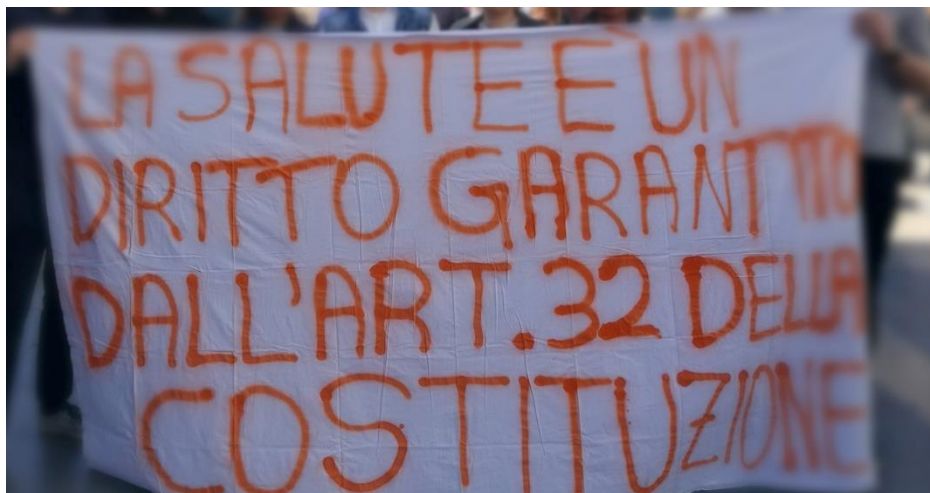 LA SALUTE È UN
DIRITTO GARANTITO
DALL'ART.32 DELLA
COSTITUZIONE